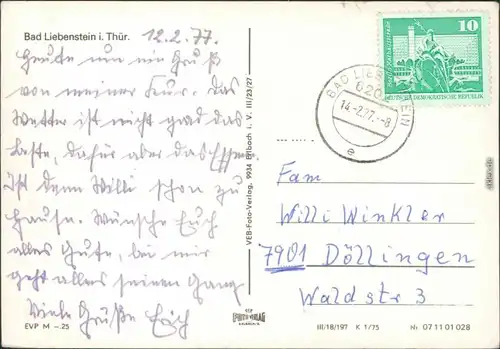 Bad Liebenstein i. Thür. 12.2.77
Heute nun ein Gruß
von meiner Kur. Das
Wetter ist nicht grad das
Beste, dafür aber das Essen.
Ist denn Willi schon zu
Hause. Wünsche Euch
alles Gute, bei mir
geht alles seinen Gang
Viele Grüße Erich
EVP M –.25
VEB-Foto-Verlag, 9934 Erlbach i. V. III/23/27
VEB
FOTO-VERLAG
ERLBACH
BAD LIEBENSTEIN
620
14.-2.77.-8
e
10
DEUTSCHE DEMOKRATISCHE REPUBLIK
Fam
Willi Winkler
7901 Döllingen
Waldstr 3
III/18/197 K 1/75 Nr 07 11 01 028